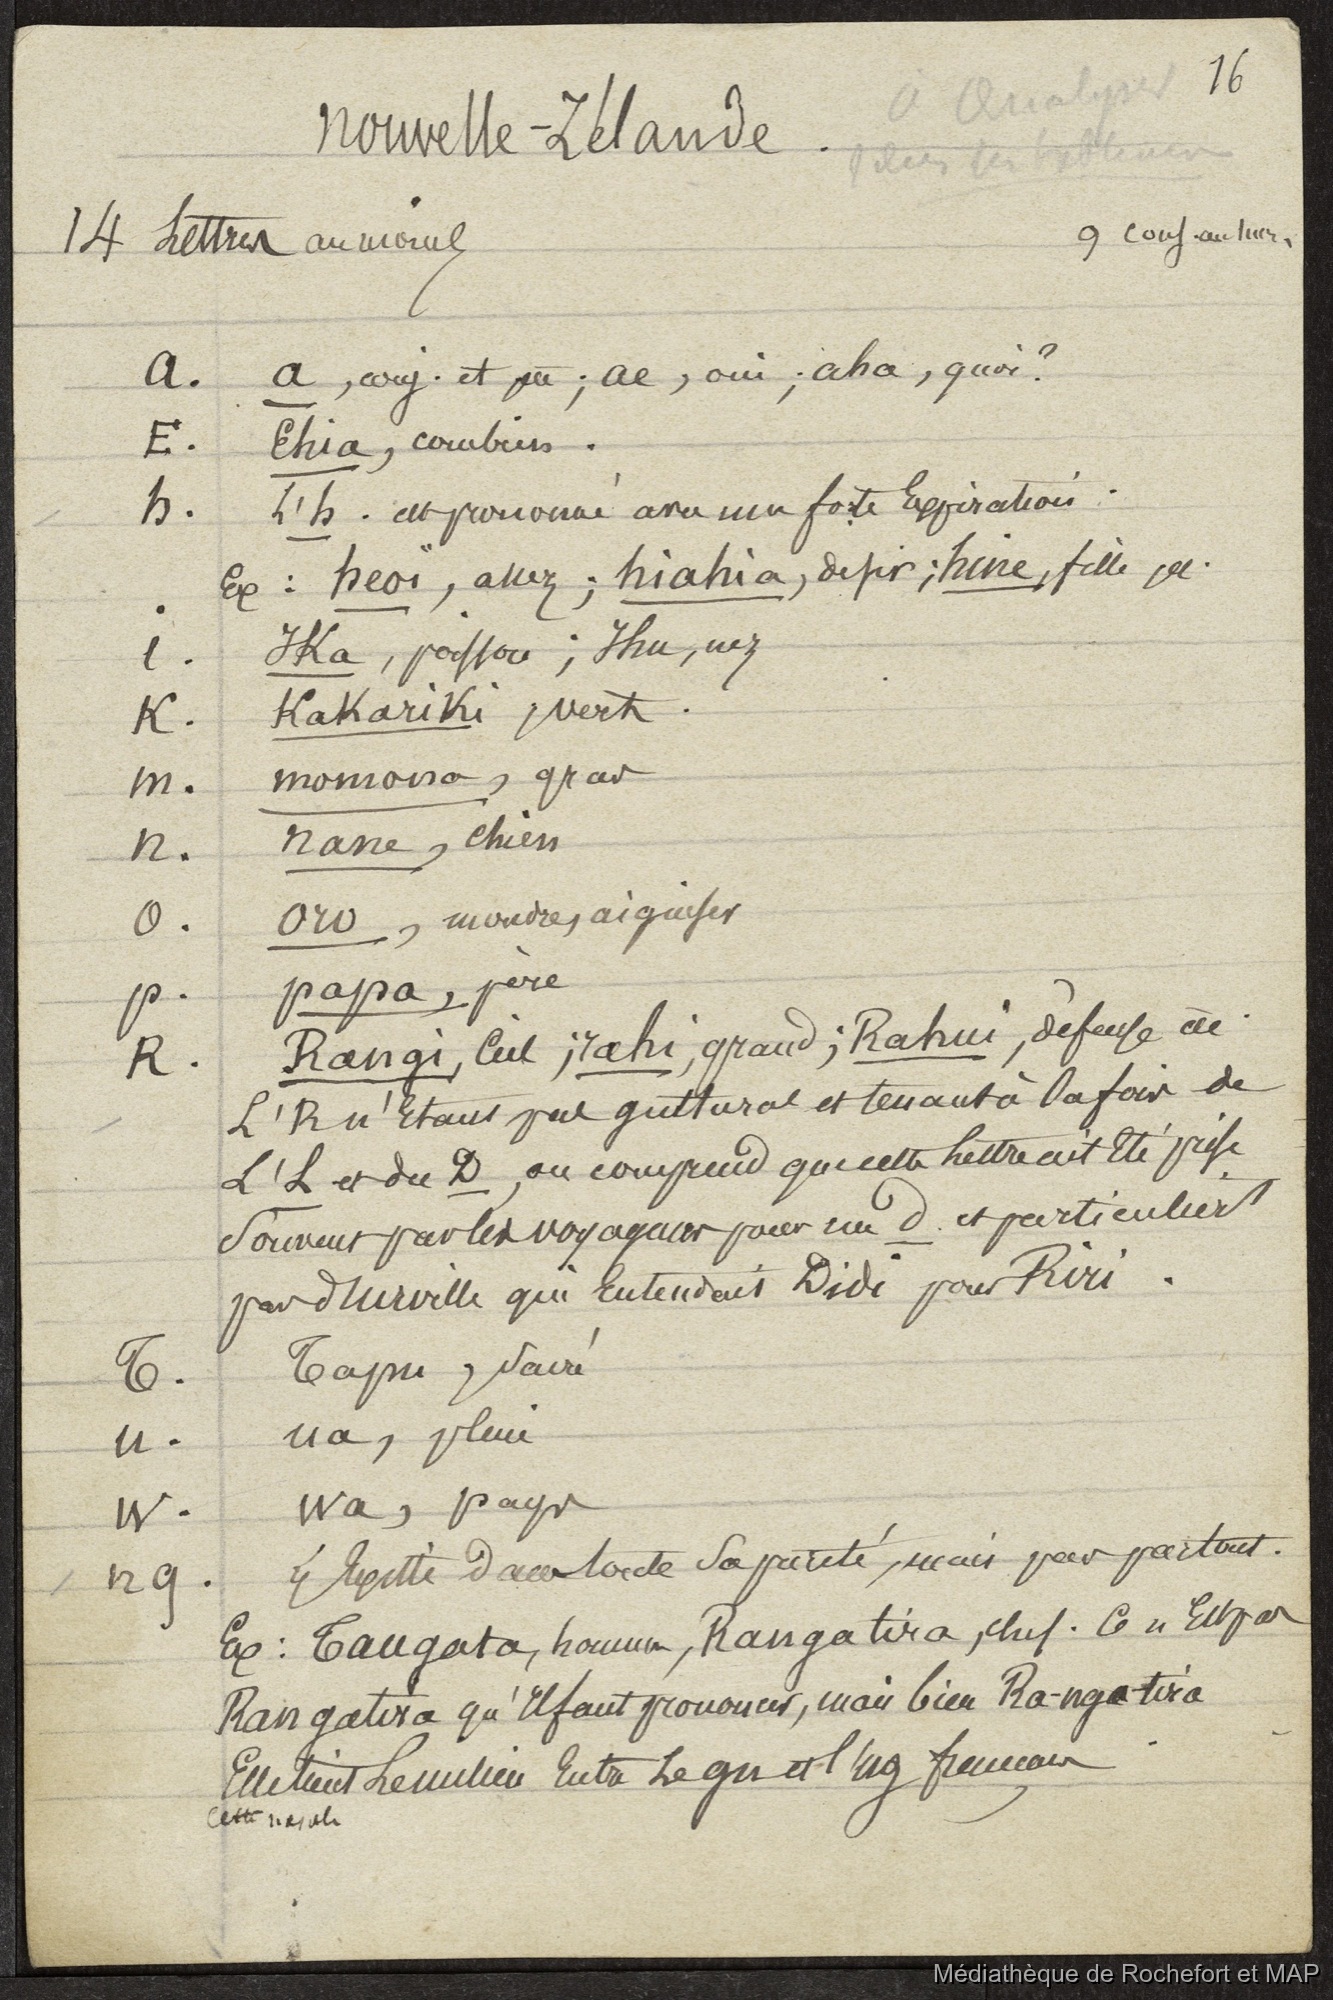 16
Nouvelle-Zélande.
à Analyser
14 Lettres au moins
9 consonnes
A. a, conj. et ; ae, oui ; aha, quoi?
E. Ehia, combien.
h. L'h. est prononcé avec une forte Expiration.
Ex: heoï, allez ; hiahia, desir ; hine, fille
i. IKa, poisson ; Ihu, nez
K. KaKariKi, vert.
m. momona, gras
n. nane, chien
o. oro, moudre, aiguiser
p. papa, père
R. Rangi, Ciel ; rahi, grand ; Rahui, défense
L'R n'Etant pas guttural et tenant à la fois de
L'L et du D, on comprend que cette Lettre ait Eté prise
Souvent par les voyageurs pour un d. et particulièrt
par d'Urville qui Entendait Didi pour Riri.
T. Tapu, sacré
u. ua, pluie
W. Wa, pays
ng. y Existe dans toute Sa pureté, mais pas partout.
Ex: Tangata, homme, Rangatira, chef. Ce n'Est pas
Rangatira qu'il faut prononcer, mais bien Ra-nga-tira
Elle tient Le milieu Entre Le gn et l'ng français
Cette nasale
Médiathèque de Rochefort et MAP